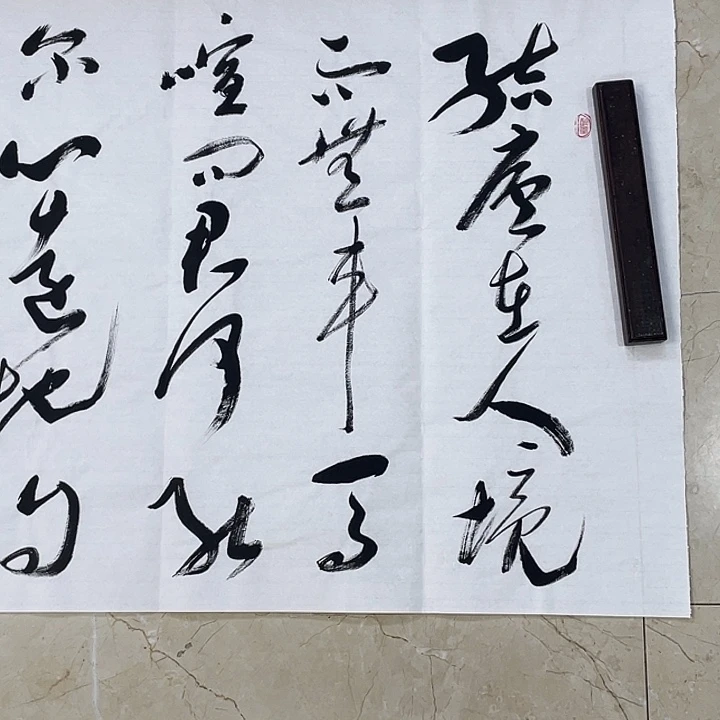 結廬在人境
而無車馬
喧問君何能
尔心遠地自